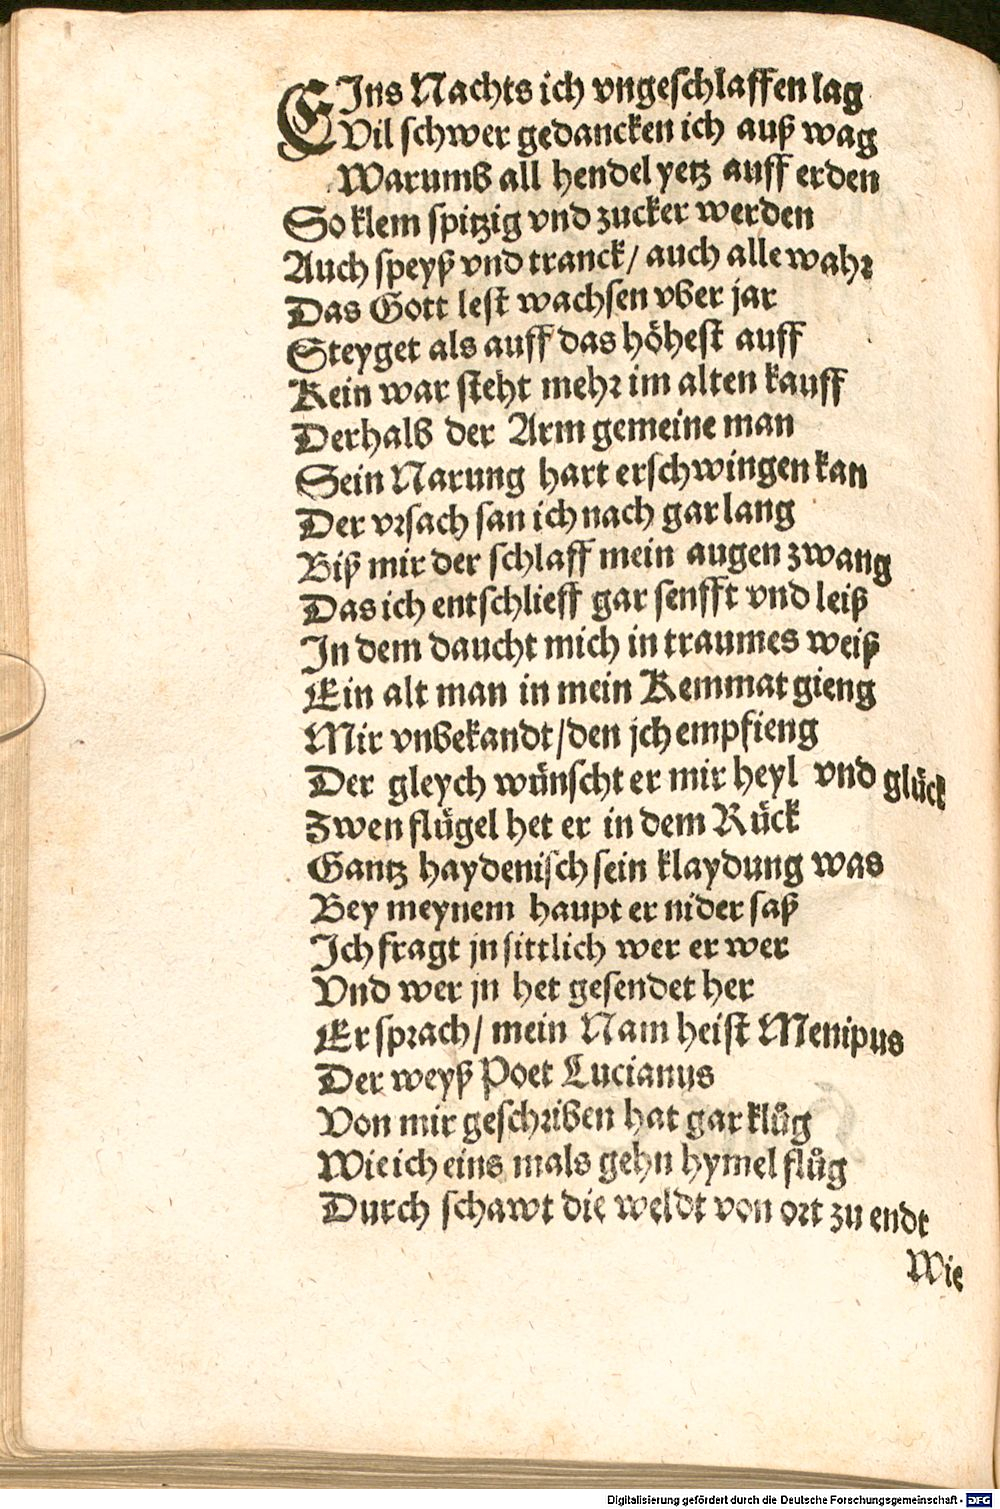 EIns Nachts ich vngeschlaffen lag
Vil schwer gedancken ich auß wag
Warumb all hendel yetz auff erden
So klem spitzig vnd zucker werden
Auch speyß vnd tranck / auch alle wahr
Das Gott lest wachsen vber jar
Steyget als auff das höhest auff
Kein war steht mehr im alten kauff
Derhalb der Arm gemeine man
Sein Narung hart erschwingen kan
Der vrsach san ich nach gar lang
Biß mir der schlaff mein augen zwang
Das ich entschlieff gar senfft vnd leiß
In dem daucht mich in traumes weiß
Ein alt man in mein Kemmat gieng
Mir vnbekandt / den jch empfieng
Der gleych wünscht er mir heyl vnd glück
Zwen flügel het er in dem Rück
Gantz haydenisch sein klaydung was
Bey meynem haupt er nider saß
Ich fragt jn sittlich wer er wer
Vnd wer jn het gesendet her
Er sprach / mein Nam heist Menipus
Der weyß Poet Lucianus
Von mir geschriben hat gar klůg
Wie ich eins mals gehn hymel flůg
Durch schawt die weldt von ort zu endt
Wie
Digitalisierung gefördert durch die Deutsche Forschungsgemeinschaft - DFG